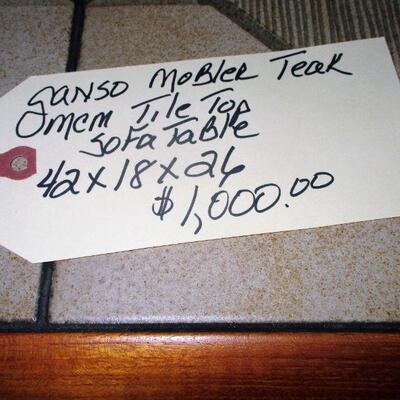 GANSO MOBLER TEAK
MCM TILE TOP
SOFA TABLE
42 x 18 x 26
$1,000.00